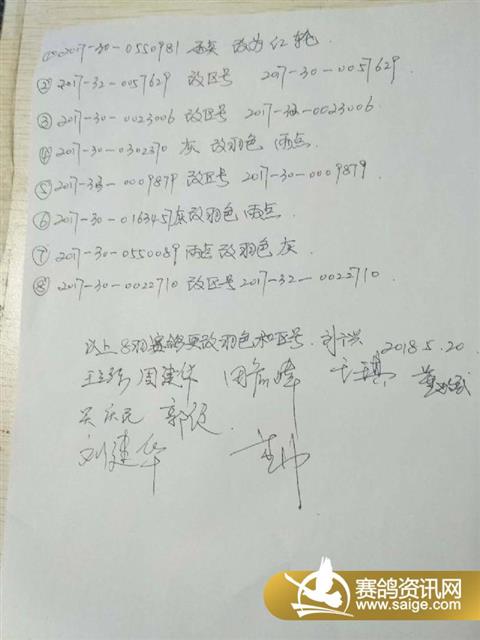 ①2017-30-0550981 雨点 改为 红轮.
② 2017-32-0057629 改区号 2017-30-0057629
③ 2017-30-0023006 改区号 2017-32-0023006
④ 2017-30-0302370 灰 改羽色 雨点.
⑤ 2017-32-0009879 改区号 2017-30-0009879
⑥ 2017-30-0163457灰改羽色雨点.
⑦ 2017-30-0550089 雨点改羽色灰.
⑧ 2017-30-0022710 改区号2017-32-0022710
以上8羽赛鸽更改羽色和区号. 2018.5.20
周建华
吴庆元 郭
刘建华
赛鸽资讯网
www.saige.com